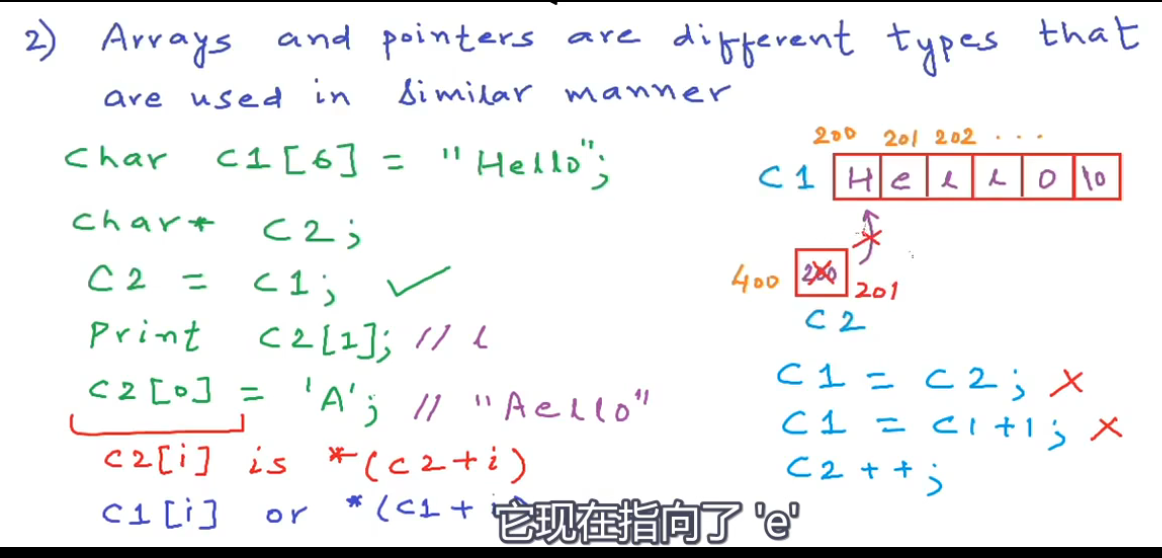 2) Arrays and pointers are different types that
are used in similar manner
Char C1[6] = "Hello";
Char* C2;
C2 = C1; ✓
Print C2[1]; // l
C2[0] = 'A'; // "Aello"
C2[i] is *(C2+i)
C1[i] or *(C1+
200 201 202 ...
C1 H e l l o \0
400 200 201
C2
C1 = C2; ×
C1 = C1+1; ×
C2++;
它现在指向了 'e'